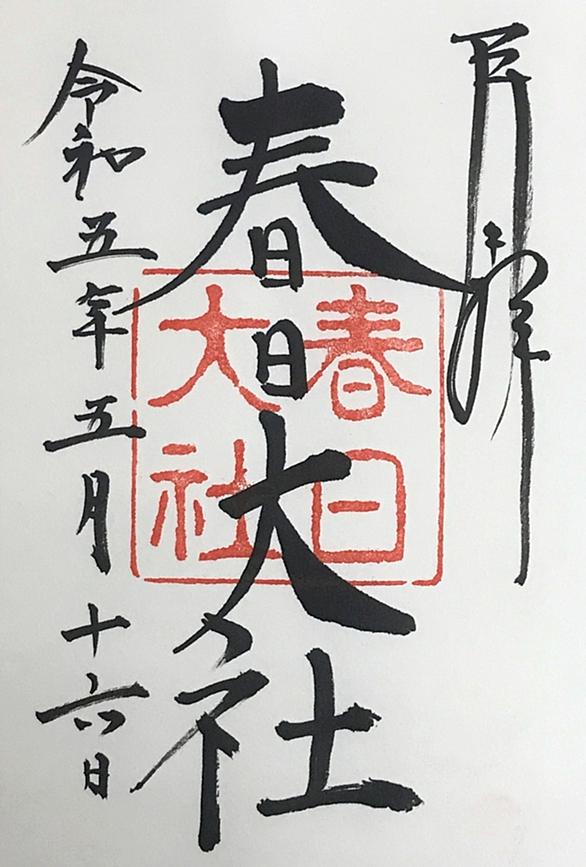 奉拝
春日大社
春日大社
令和五年五月十六日